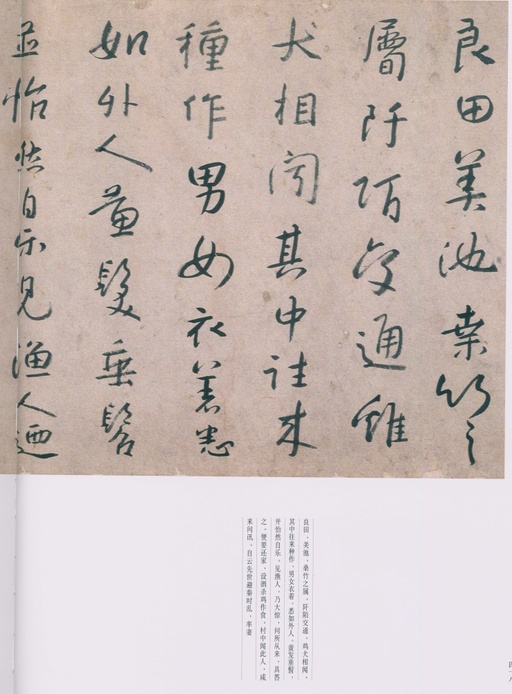 良田美池桑竹之
屬阡陌交通雞
犬相聞其中往来
種作男女衣著悉
如外人黃髮垂髫
並怡然自樂見漁人廼
良田、美池、桑竹之属、阡陌交通、鸡犬相闻。
其中往来种作、男女衣着、悉如外人、黄发垂髫、
并怡然自乐。见渔人、乃大惊、问所从来、具答
之。便要还家、设酒杀鸡作食。村中闻此人、咸
来问讯。自云先世避秦时乱、率妻